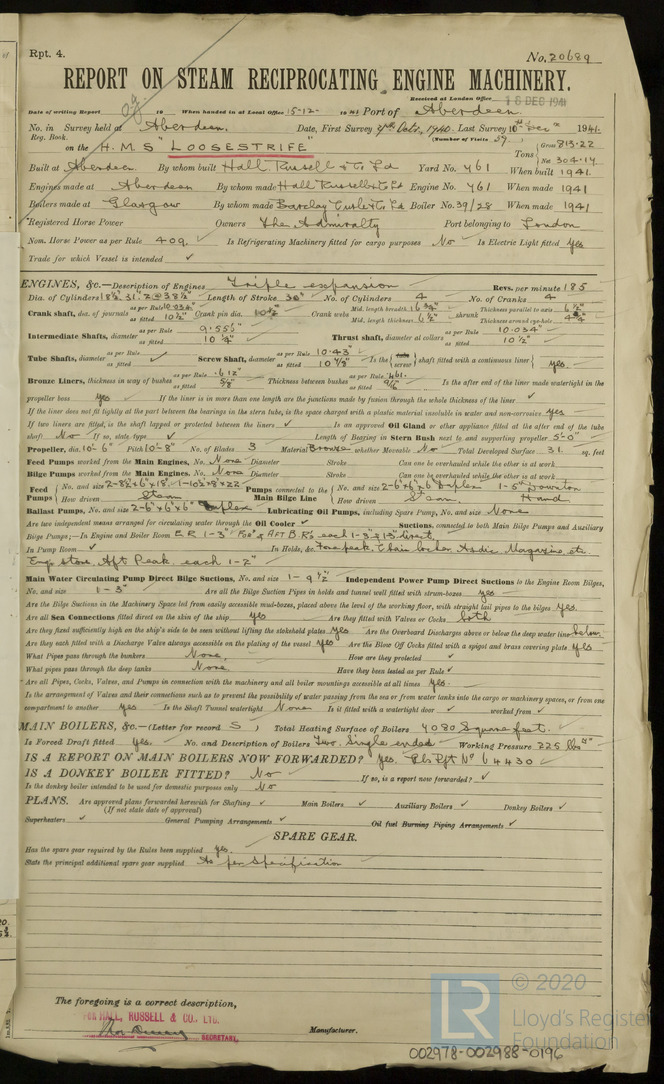 Rpt. 4.
No. 20689
REPORT ON STEAM RECIPROCATING ENGINE MACHINERY.
Received at London Office 18 DEC 1941
Date of writing Report 19 When handed in at Local Office 15-12- 1941 Port of Aberdeen
No. in Survey held at Aberdeen. Date, First Survey 4th Oct. 1940. Last Survey 10th Dec 1941.
Reg. Book. (Number of Visits 59)
on the H.M.S "LOOSESTRIFE" Tons Gross 813.22 Net 304.14
Built at Aberdeen By whom built Hall, Russell & Co Ld Yard No. 761 When built 1941.
Engines made at Aberdeen By whom made Hall Russell & Co Ld Engine No. 761 When made 1941
Boilers made at Glasgow By whom made Barclay Curle & Co Ld Boiler No. 39/28 When made 1941
Registered Horse Power Owners The Admiralty Port belonging to London
Nom. Horse Power as per Rule 409. Is Refrigerating Machinery fitted for cargo purposes No Is Electric Light fitted Yes
Trade for which Vessel is intended ✓
ENGINES, &c.—Description of Engines Triple expansion Revs. per minute 185
Dia. of Cylinders 18½" 31" 2@38½" Length of Stroke 30" No. of Cylinders 4 No. of Cranks 4
Crank shaft, dia. of journals as per Rule 10.034" as fitted 10½" Crank pin dia. 10½" Crank webs Mid. length breadth Mid. length thickness 6½" shrunk Thickness parallel to axis 6½" Thickness around eye-hole
Intermediate Shafts, diameter as per Rule 9.555" as fitted Thrust shaft, diameter at collars as per Rule 10.034" as fitted 10½"
Tube Shafts, diameter as per Rule as fitted ✓ Screw Shaft, diameter as per Rule 10.43" as fitted 10⅞" Is the tube screw shaft fitted with a continuous liner yes.
Bronze Liners, thickness in way of bushes as per Rule .612" as fitted ⅝" Thickness between bushes as per Rule .461 as fitted 9/16" Is the after end of the liner made watertight in the
propeller boss yes If the liner is in more than one length are the junctions made by fusion through the whole thickness of the liner ✓
If the liner does not fit tightly at the part between the bearings in the stern tube, is the space charged with a plastic material insoluble in water and non-corrosive yes
If two liners are fitted, is the shaft lapped or protected between the liners ✓ Is an approved Oil Gland or other appliance fitted at the after end of the tube
shaft No If so, state type ✓ Length of Bearing in Stern Bush next to and supporting propeller 5'-0"
Propeller, dia. 10'-6" Pitch 10'-8" No. of Blades 3 Material Bronze whether Moveable No Total Developed Surface 31 sq. feet
Feed Pumps worked from the Main Engines, No. None Diameter Stroke Can one be overhauled while the other is at work
Bilge Pumps worked from the Main Engines, No. None Diameter Stroke Can one be overhauled while the other is at work
Feed Pumps No. and size How driven Steam Pumps connected to the Main Bilge Line No. and size 2-6"x6"x6" Duplex 1-5" Downton How driven Steam Hand
Ballast Pumps, No. and size 2-6"x6"x6" Duplex Lubricating Oil Pumps, including Spare Pump, No. and size None
Are two independent means arranged for circulating water through the Oil Cooler ✓ Suctions, connected to both Main Bilge Pumps and Auxiliary
Bilge Pumps;—In Engine and Boiler Room E.R. 1-3" For'd & AFT B.R's each 1-3" & 1-3" direct.
In Pump Room ✓ In Holds, &c. Fore peak, Chain locker, Asdic, Magazine etc
Eng. store, Aft Peak. each 1-2"
Main Water Circulating Pump Direct Bilge Suctions, No. and size 1-9½" Independent Power Pump Direct Suctions to the Engine Room Bilges,
No. and size 1-3" Are all the Bilge Suction Pipes in holds and tunnel well fitted with strum-boxes yes
Are the Bilge Suctions in the Machinery Space led from easily accessible mud-boxes, placed above the level of the working floor, with straight tail pipes to the bilges yes.
Are all Sea Connections fitted direct on the skin of the ship yes Are they fitted with Valves or Cocks both
Are they fixed sufficiently high on the ship's side to be seen without lifting the stokehold plates yes Are the Overboard Discharges above or below the deep water line below.
Are they each fitted with a Discharge Valve always accessible on the plating of the vessel yes Are the Blow Off Cocks fitted with a spigot and brass covering plate yes
What Pipes pass through the bunkers None. How are they protected ✓
What pipes pass through the deep tanks None Have they been tested as per Rule ✓
Are all Pipes, Cocks, Valves, and Pumps in connection with the machinery and all boiler mountings accessible at all times yes.
Is the arrangement of Valves and their connections such as to prevent the possibility of water passing from the sea or from water tanks into the cargo or machinery spaces, or from one
compartment to another yes Is the Shaft Tunnel watertight None Is it fitted with a watertight door ✓ worked from ✓
MAIN BOILERS, &c.—(Letter for record S) Total Heating Surface of Boilers 4080 Square feet.
Is Forced Draft fitted Yes. No. and Description of Boilers Two, Single ended Working Pressure 225 lbs □"
IS A REPORT ON MAIN BOILERS NOW FORWARDED? Yes. Gls Rpt No 64430
IS A DONKEY BOILER FITTED? No If so, is a report now forwarded? ✓
Is the donkey boiler intended to be used for domestic purposes only No
PLANS. Are approved plans forwarded herewith for Shafting ✓ Main Boilers ✓ Auxiliary Boilers ✓ Donkey Boilers ✓
(If not state date of approval)
Superheaters ✓ General Pumping Arrangements ✓ Oil fuel Burning Piping Arrangements ✓
SPARE GEAR.
Has the spare gear required by the Rules been supplied yes.
State the principal additional spare gear supplied As per Specification
The foregoing is a correct description,
FOR HALL, RUSSELL & CO., LTD.
SECRETARY.
Manufacturer.
© 2020
LR
Lloyd's Register
Foundation
002978-002988-0196